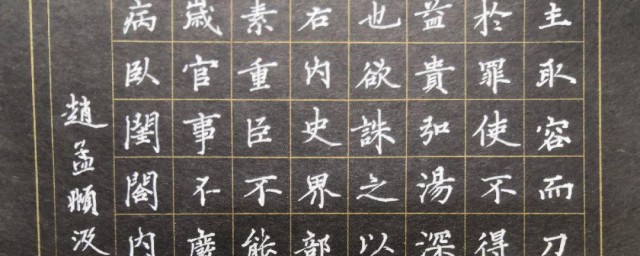 主取容而刀
於罪使不得
益貴弘湯深
也欲誅之以
右内史界部
素重臣不能
歲官事不廢
病臥閨閣内
趙孟頫汲